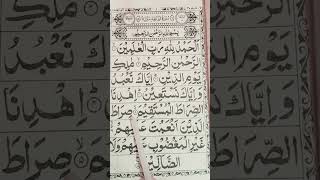 بِسْمِ اللهِ الرَّحْمٰنِ الرَّحِيْمِ
اَلْحَمْدُ لِلّٰهِ رَبِّ الْعٰلَمِيْنَ
الرَّحْمٰنِ الرَّحِيْمِ مٰلِكِ
يَوْمِ الدِّيْنِ اِيَّاكَ نَعْبُدُ
وَاِيَّاكَ نَسْتَعِيْنُ اِهْدِنَا
الصِّرَاطَ الْمُسْتَقِيْمَ صِرَاطَ
الَّذِيْنَ اَنْعَمْتَ عَلَيْهِمْ
غَيْرِ الْمَغْضُوْبِ عَلَيْهِمْ وَلَا
الضَّآلِّيْنَ